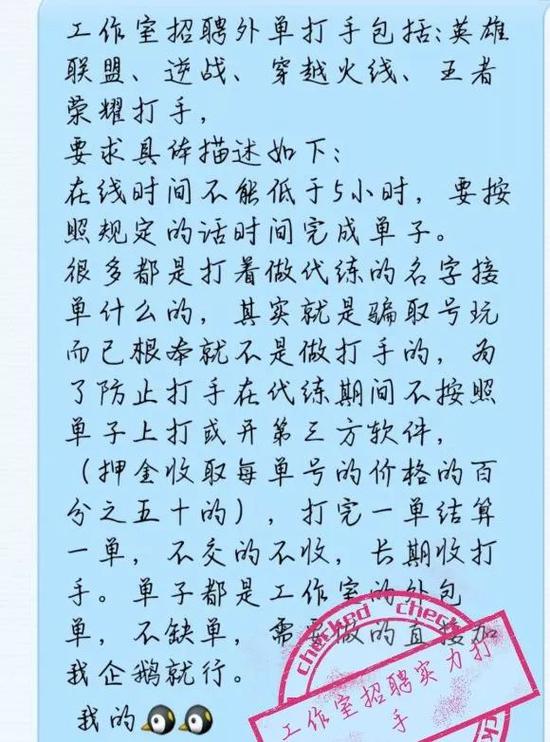 工作室招聘外单打手包括:英雄
联盟、逆战、穿越火线、王者
荣耀打手，
要求具体描述如下：
在线时间不能低于5小时，要按
照规定的话时间完成单子。
很多都是打着做代练的名字接
单什么的，其实就是骗取号玩
而已根本就不是做打手的，为
了防止打手在代练期间不按照
单子上打或开第三方软件，
（押金收取每单号的价格的百
分之五十的），打完一单结算
一单，不交的不收，长期收打
手。单子都是工作室的外包
单，不缺单，需要做的直接加
我企鹅就行。
我的
checked check
工作室招聘实力打
手
checked